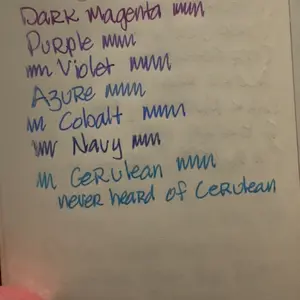 Dark Magenta
Purple
Violet
Azure
Cobalt
Navy
Cerulean
never heard of Cerulean